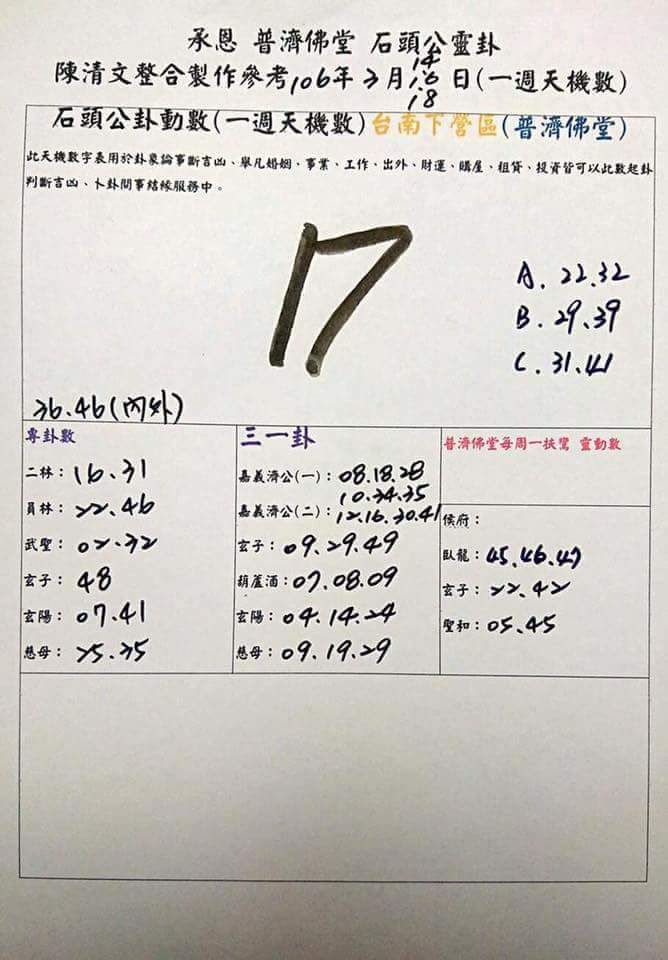 承恩 普濟佛堂 石頭公靈卦
陳清文整合製作參考106年3月14.16.18日(一週天機數)
石頭公卦動數(一週天機數)台南下營區(普濟佛堂)
此天機數字表用於卦象論事斷吉凶、舉凡婚姻、事業、工作、出外、財運、購屋、租賃、投資皆可以此數起卦
判斷吉凶、卜卦問事結緣服務中。
17
A. 22.32
B. 29.39
C. 31.41
36.46(內外)
專卦數
二林：16.31
員林：22.46
武聖：02.32
玄子：48
玄陽：07.41
慈母：25.35
三一卦
嘉義濟公(一)：08.18.28
10.34.35
嘉義濟公(二)：12.16.30.41
玄子：09.29.49
葫蘆酒：07.08.09
玄陽：04.14.24
慈母：09.19.29
普濟佛堂每周一扶鸞 靈動數
侯府：
臥龍：45.46.47
玄子：22.42
聖和：05.45